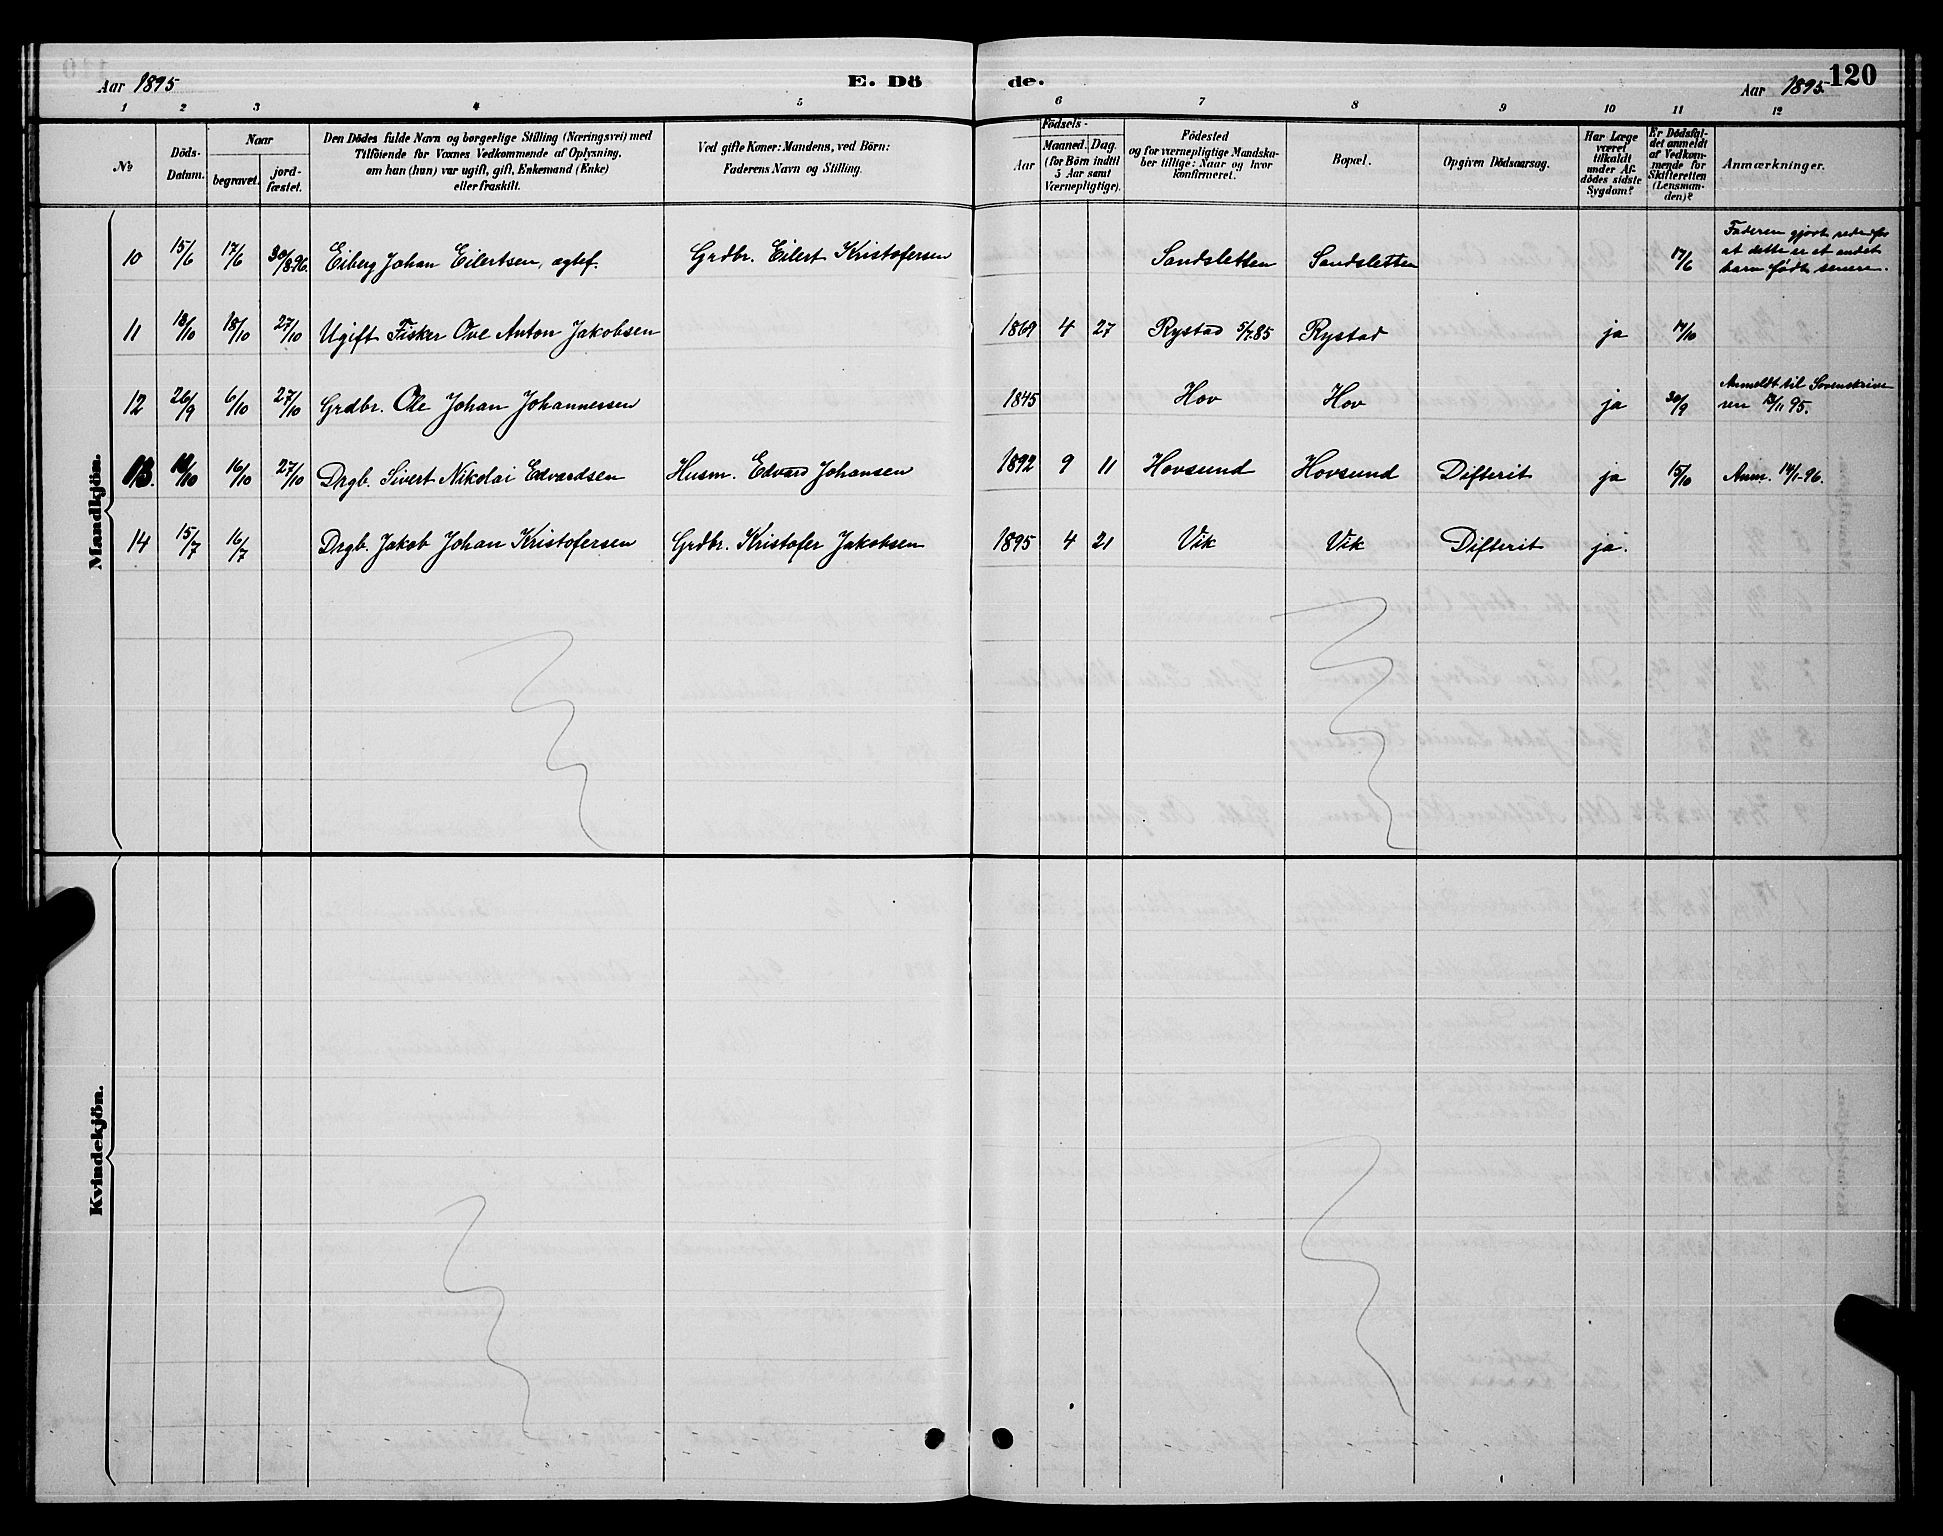 Aar 1895
E. Dö
de.
Aar 1895.
120
1 2 3 4 5 6 7 8 9 10 11 12
№
Döds-
Datum.
Naar
begravet.
jord-
fæstet.
Den Dödes fulde Navn og borgerlige Stilling (Næringsvei) med
Tilföiende for Voxnes Vedkommende af Oplysning,
om han (hun) var ugift, gift, Enkemand (Enke)
eller fraskilt.
Ved gifte Koner: Mandens, ved Börn:
Faderens Navn og Stilling.
Födsels-
Aar
Maaned. Dag.
(for Börn indtil
5 Aar samt
Værnepligtige).
Födested
og for værnepligtige Mandska-
ber tillige: Naar og hvor
konfirmeret.
Bopæl.
Opgiven Dödsaarsag.
Har Læge
været
tilkaldt
under Af-
dödes sidste
Sygdom?
Er Dödsfal-
det anmeldt
af Vedkom-
mende for
Skifteretten
(Lensman-
den)?
Anmærkninger.
Mandkjön.
10 15/6 17/6 30/8.96. Eiberg Johan Eilertsen, ægtef. Grdbr. Eilert Kristofersen Sandsletten Sandsletten 17/6
Faderen gjort
at dette er et andet
barn födt senere.
11 13/10 18/10 27/10 Ugift Fisker Ove Anton Jakobsen 1869 4 27 Rystad 5/7.85 Rystad ja 14/10
12 26/9 6/10 27/10 Grdbr. Ole Johan Johannessen 1845 Hov Hov ja 30/9
Anmeldt til Sorenskrive
ren 13/11 95.
13. 10/10 16/10 27/10 Drgb. Sivert Nikolai Edvardsen Husm. Edvard Johansen 1892 9 11 Hovsund Hovsund Difterit ja 15/10 Anm. 14/1-96.
14 15/7 16/7 Drgb. Jakob Johan Kristofersen Grdbr. Kristofer Jakobsen 1895 4 21 Vik Vik Difterit ja.
Kvindekjön.